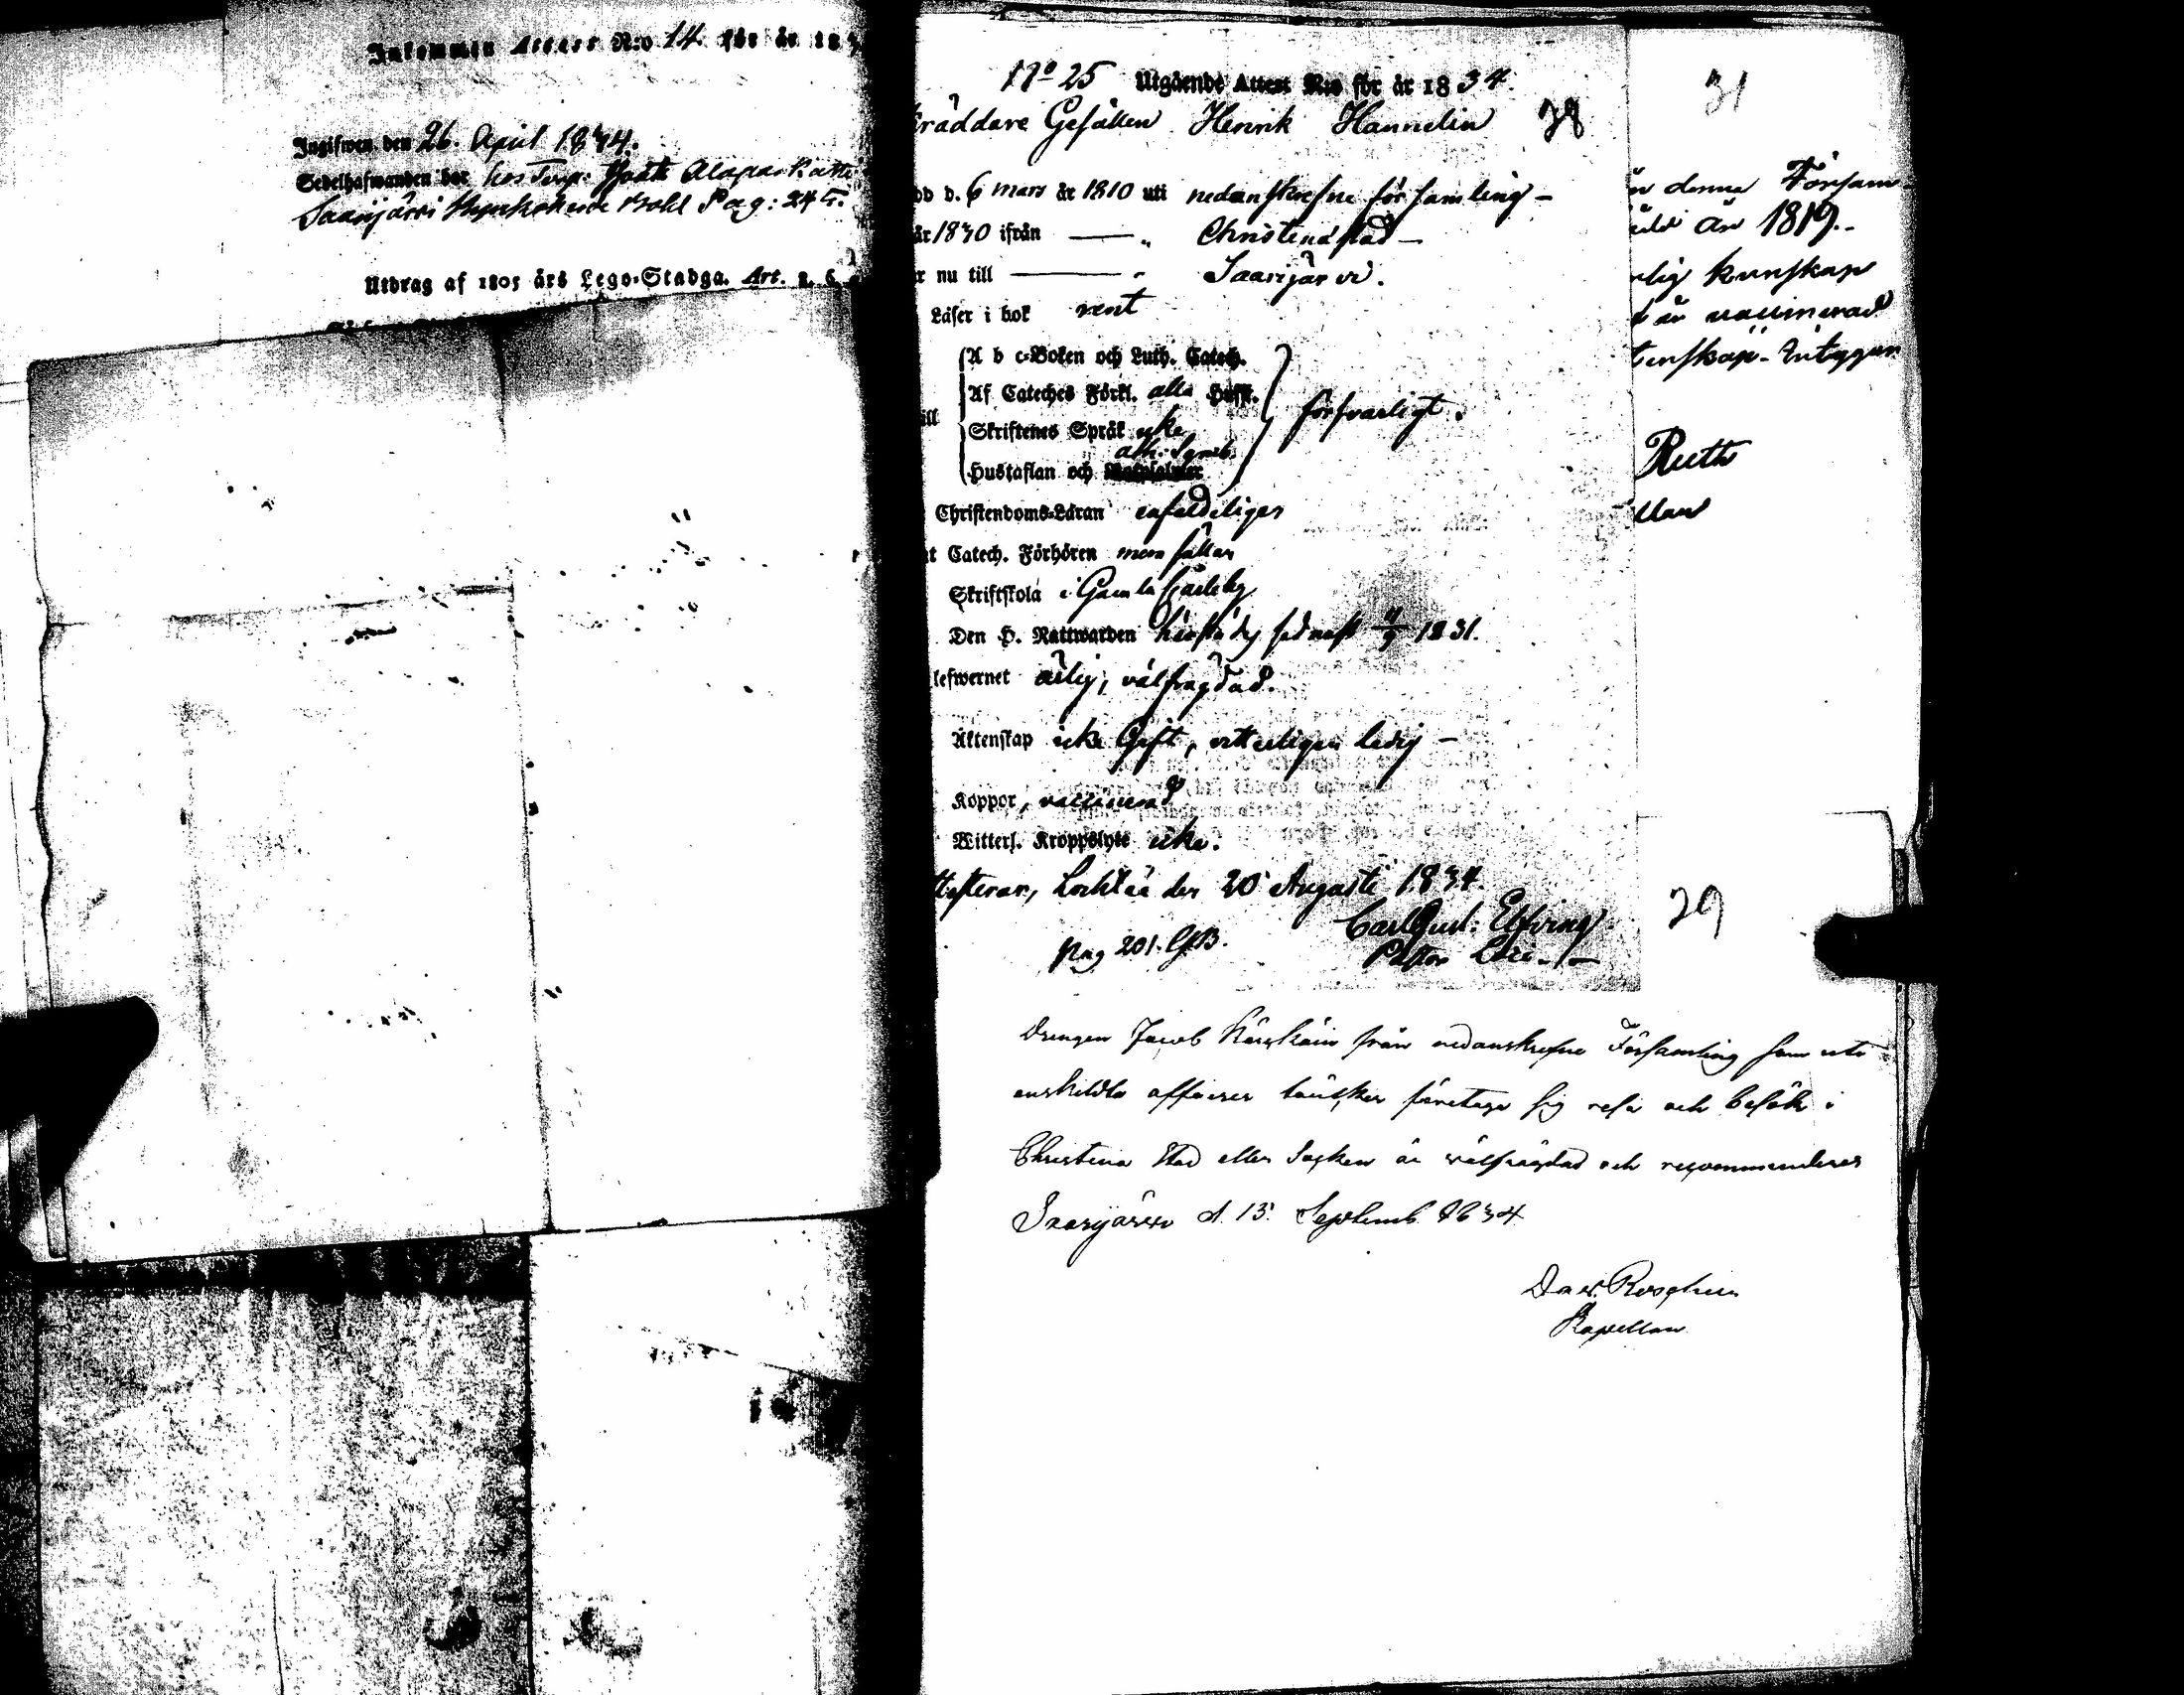 Inkommen Attest N:o 14. för år 183
Ingifwen den 26. April 1834.
Sedelhafwanden bor hos Torp:
Saarijärvi Pag: 245.
Utdrag af 1805 års Lego-Stadga. Art. 2. 6.
N:o 25 Utgående Attest N:o för år 1834.
räddare Gesällen Henrik Hannelin 38
dd d. 6 mars år 1810 uti nedanskrefne församling -
år 1830 ifrån — " Christina stad -
r nu till — " Saarijärvi.
Läser i bok rent
A b c-Boken och Luth. Catech.
Af Cateches Förkl. alla Hufst.
försvarligt.
ill
Skriftenes Språk icke
ath. Symb.
Hustaflan och
Christendoms-Läran enfaldeligen
t Catech. Förhören
Skriftskola i Gamla Carleby
Den H. Nattwarden härstädes sednast 1831.
lefwernet ärlig, välfrägdad.
Äktenskap icke Gift, vitterligen ledig -
Koppor, vaccinerad
Witterl. Kroppslyte icke.
ttesterar, Lochteå den 20 Augusti 1834.
Carl Gust. Elfving
Pag 201. C.B.
Pastor Loci
31
n denna Försam
1819.-
lig kunskap
är vaccinerad
tenskap - Intygar
Ruth
llan
29
Drengen Jacob från nedanskrefne Församling som uti
enskildta affairer tänker företaga sig resa och besök i
Christina Stad eller Socken är välfrägdad och recommenderas
Saarijärvi d. 13. Septemb. 1834
Dav. Roschier
Kapellan